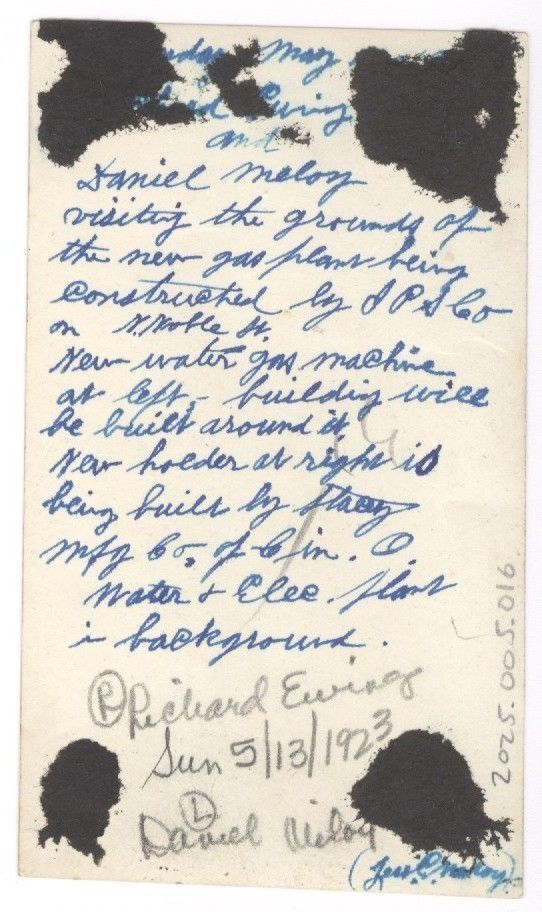 May
Ewing
and
Daniel Meloy
visiting the grounds of
the new gas plant being
constructed by I P S Co
on N. Noble St.
New water gas machine
at left, - building will
be built around it
New holder at right is
being built by Stacey
Mfg Co. of Cin. O.
Water & Elec. plant
in background.
Ⓡ Richard Ewing
Sun 5/13/1923
Ⓛ
Daniel Meloy
2025.005.016